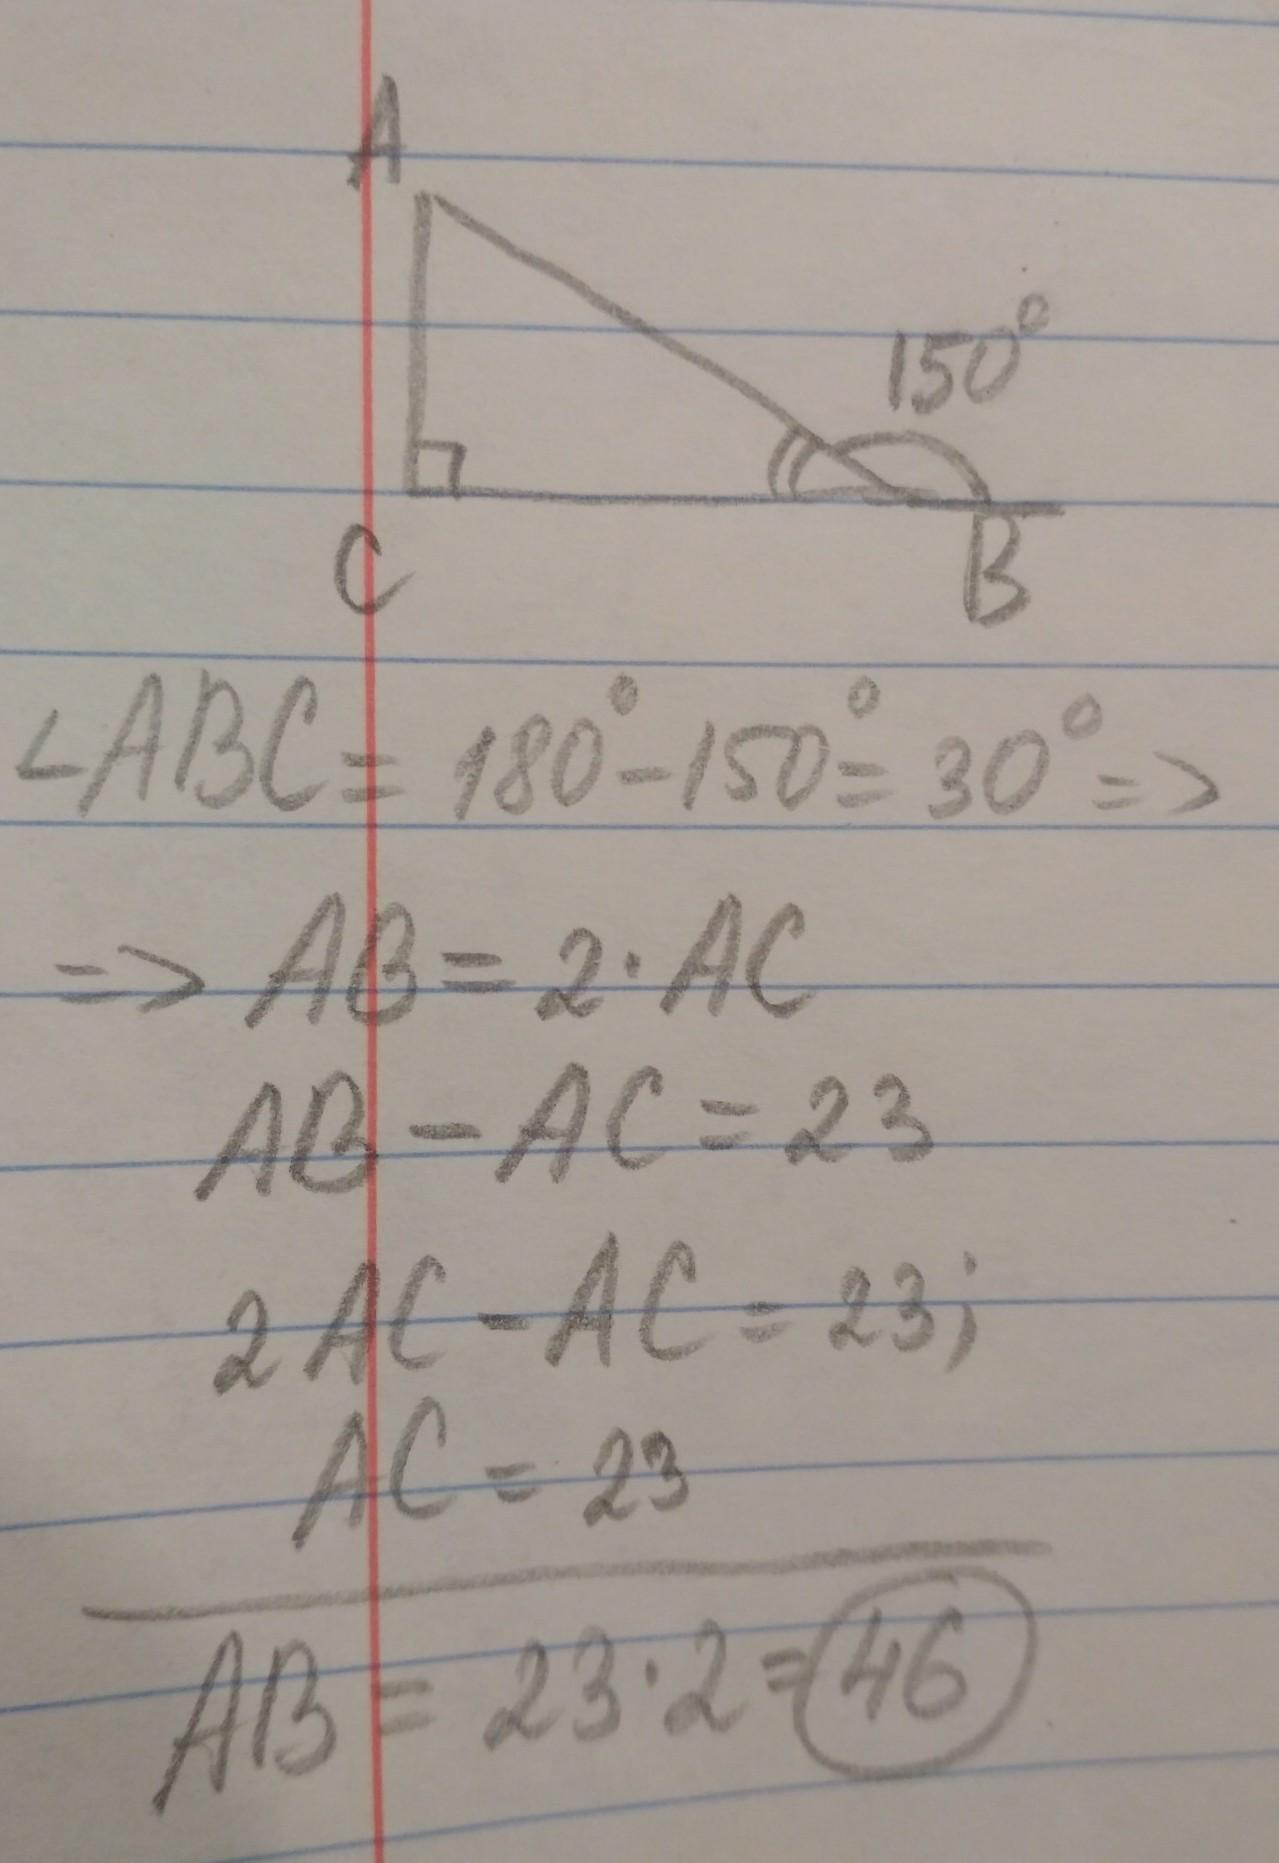 A
150°
C
B
∠ABC = 180° - 150° = 30° =>
=> AB = 2 · AC
AB - AC = 23
2AC - AC = 23;
AC = 23
AB = 23 · 2 = 46